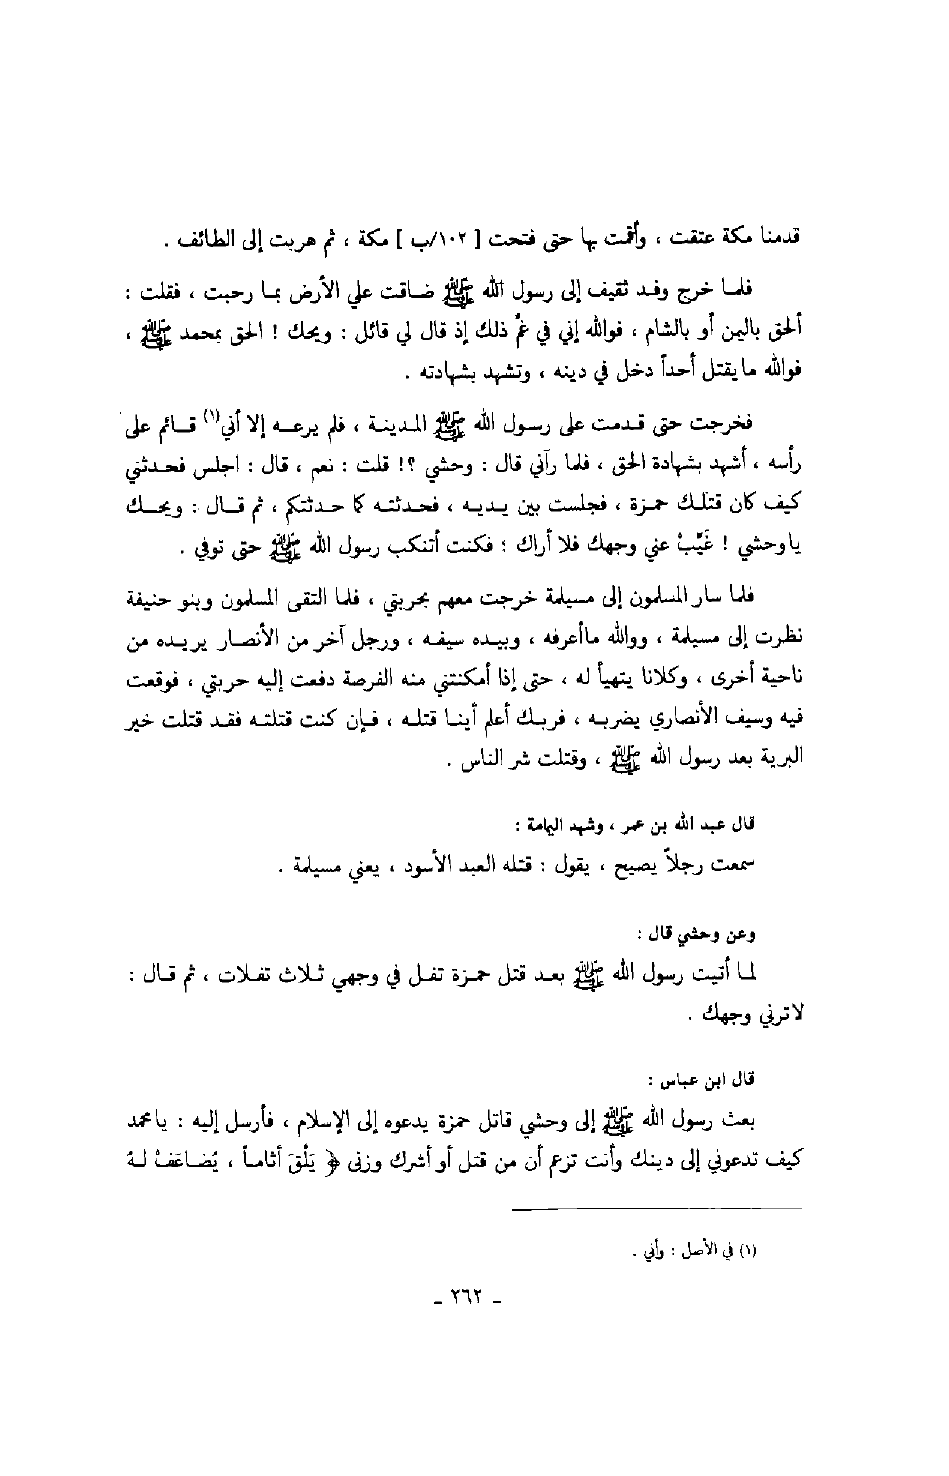 قدمنا مكة عتقت ، وأقمت بها حتى فتحت [ ١٠٢/ب ] مكة ، ثم هربت إلى الطائف .
فلما خرج وفد ثقيف إلى رسول الله ﷺ ضاقت علي الأرض بما رحبت ، فقلت :
ألحق باليمن أو بالشام ، فوالله إني في غمّ ذلك إذ قال لي قائل : ويحك ! الحق بمحمد ﷺ ،
فوالله مايقتل أحداً دخل في دينه ، وتشهد بشهادته .
فخرجت حتى قدمت على رسول الله ﷺ المدينة ، فلم يرعه إلا أني(١) قائم على
رأسه ، أشهد بشهادة الحق ، فلما رآني قال : وحشي ؟! قلت : نعم ، قال : اجلس فحدثني
كيف كان قتلك حمزة ، فجلست بين يديه ، فحدثته كما حدثتكم ، ثم قال : ويحك
ياوحشي ! غَيِّبْ عني وجهك فلا أراك ؛ فكنت أتنكب رسول الله ﷺ حتى توفي .
فلما سار المسلمون إلى مسيلمة خرجت معهم بحربتي ، فلما التقى المسلمون وبنو حنيفة
نظرت إلى مسيلمة ، ووالله ماأعرفه ، وبيده سيفه ، ورجل آخر من الأنصار يريده من
ناحية أخرى ، وكلانا يتهيأ له ، حتى إذا أمكنتني منه الفرصة دفعت إليه حربتي ، فوقعت
فيه وسيف الأنصاري يضربه ، فربك أعلم أينا قتله ، فإن كنت قتلته فقد قتلت خير
البرية بعد رسول الله ﷺ ، وقتلت شر الناس .
قال عبد الله بن عمر ، وشهد اليمامة :
سمعت رجلاً يصيح ، يقول : قتله العبد الأسود ، يعني مسيلمة .
وعن وحشي قال :
لما أتيت رسول الله ﷺ بعد قتل حمزة تفل في وجهي ثلاث تفلات ، ثم قال :
لاترني وجهك .
قال ابن عباس :
بعث رسول الله ﷺ إلى وحشي قاتل حمزة يدعوه إلى الإسلام ، فأرسل إليه : يامحمد
كيف تدعوني إلى دينك وأنت تزعم أن من قتل أو أشرك وزنى ﴿ يَلْقَ أثاماً ، يُضاعَفْ لهُ
(١) في الأصل : وأني .
ـ ٢٦٢ ـ